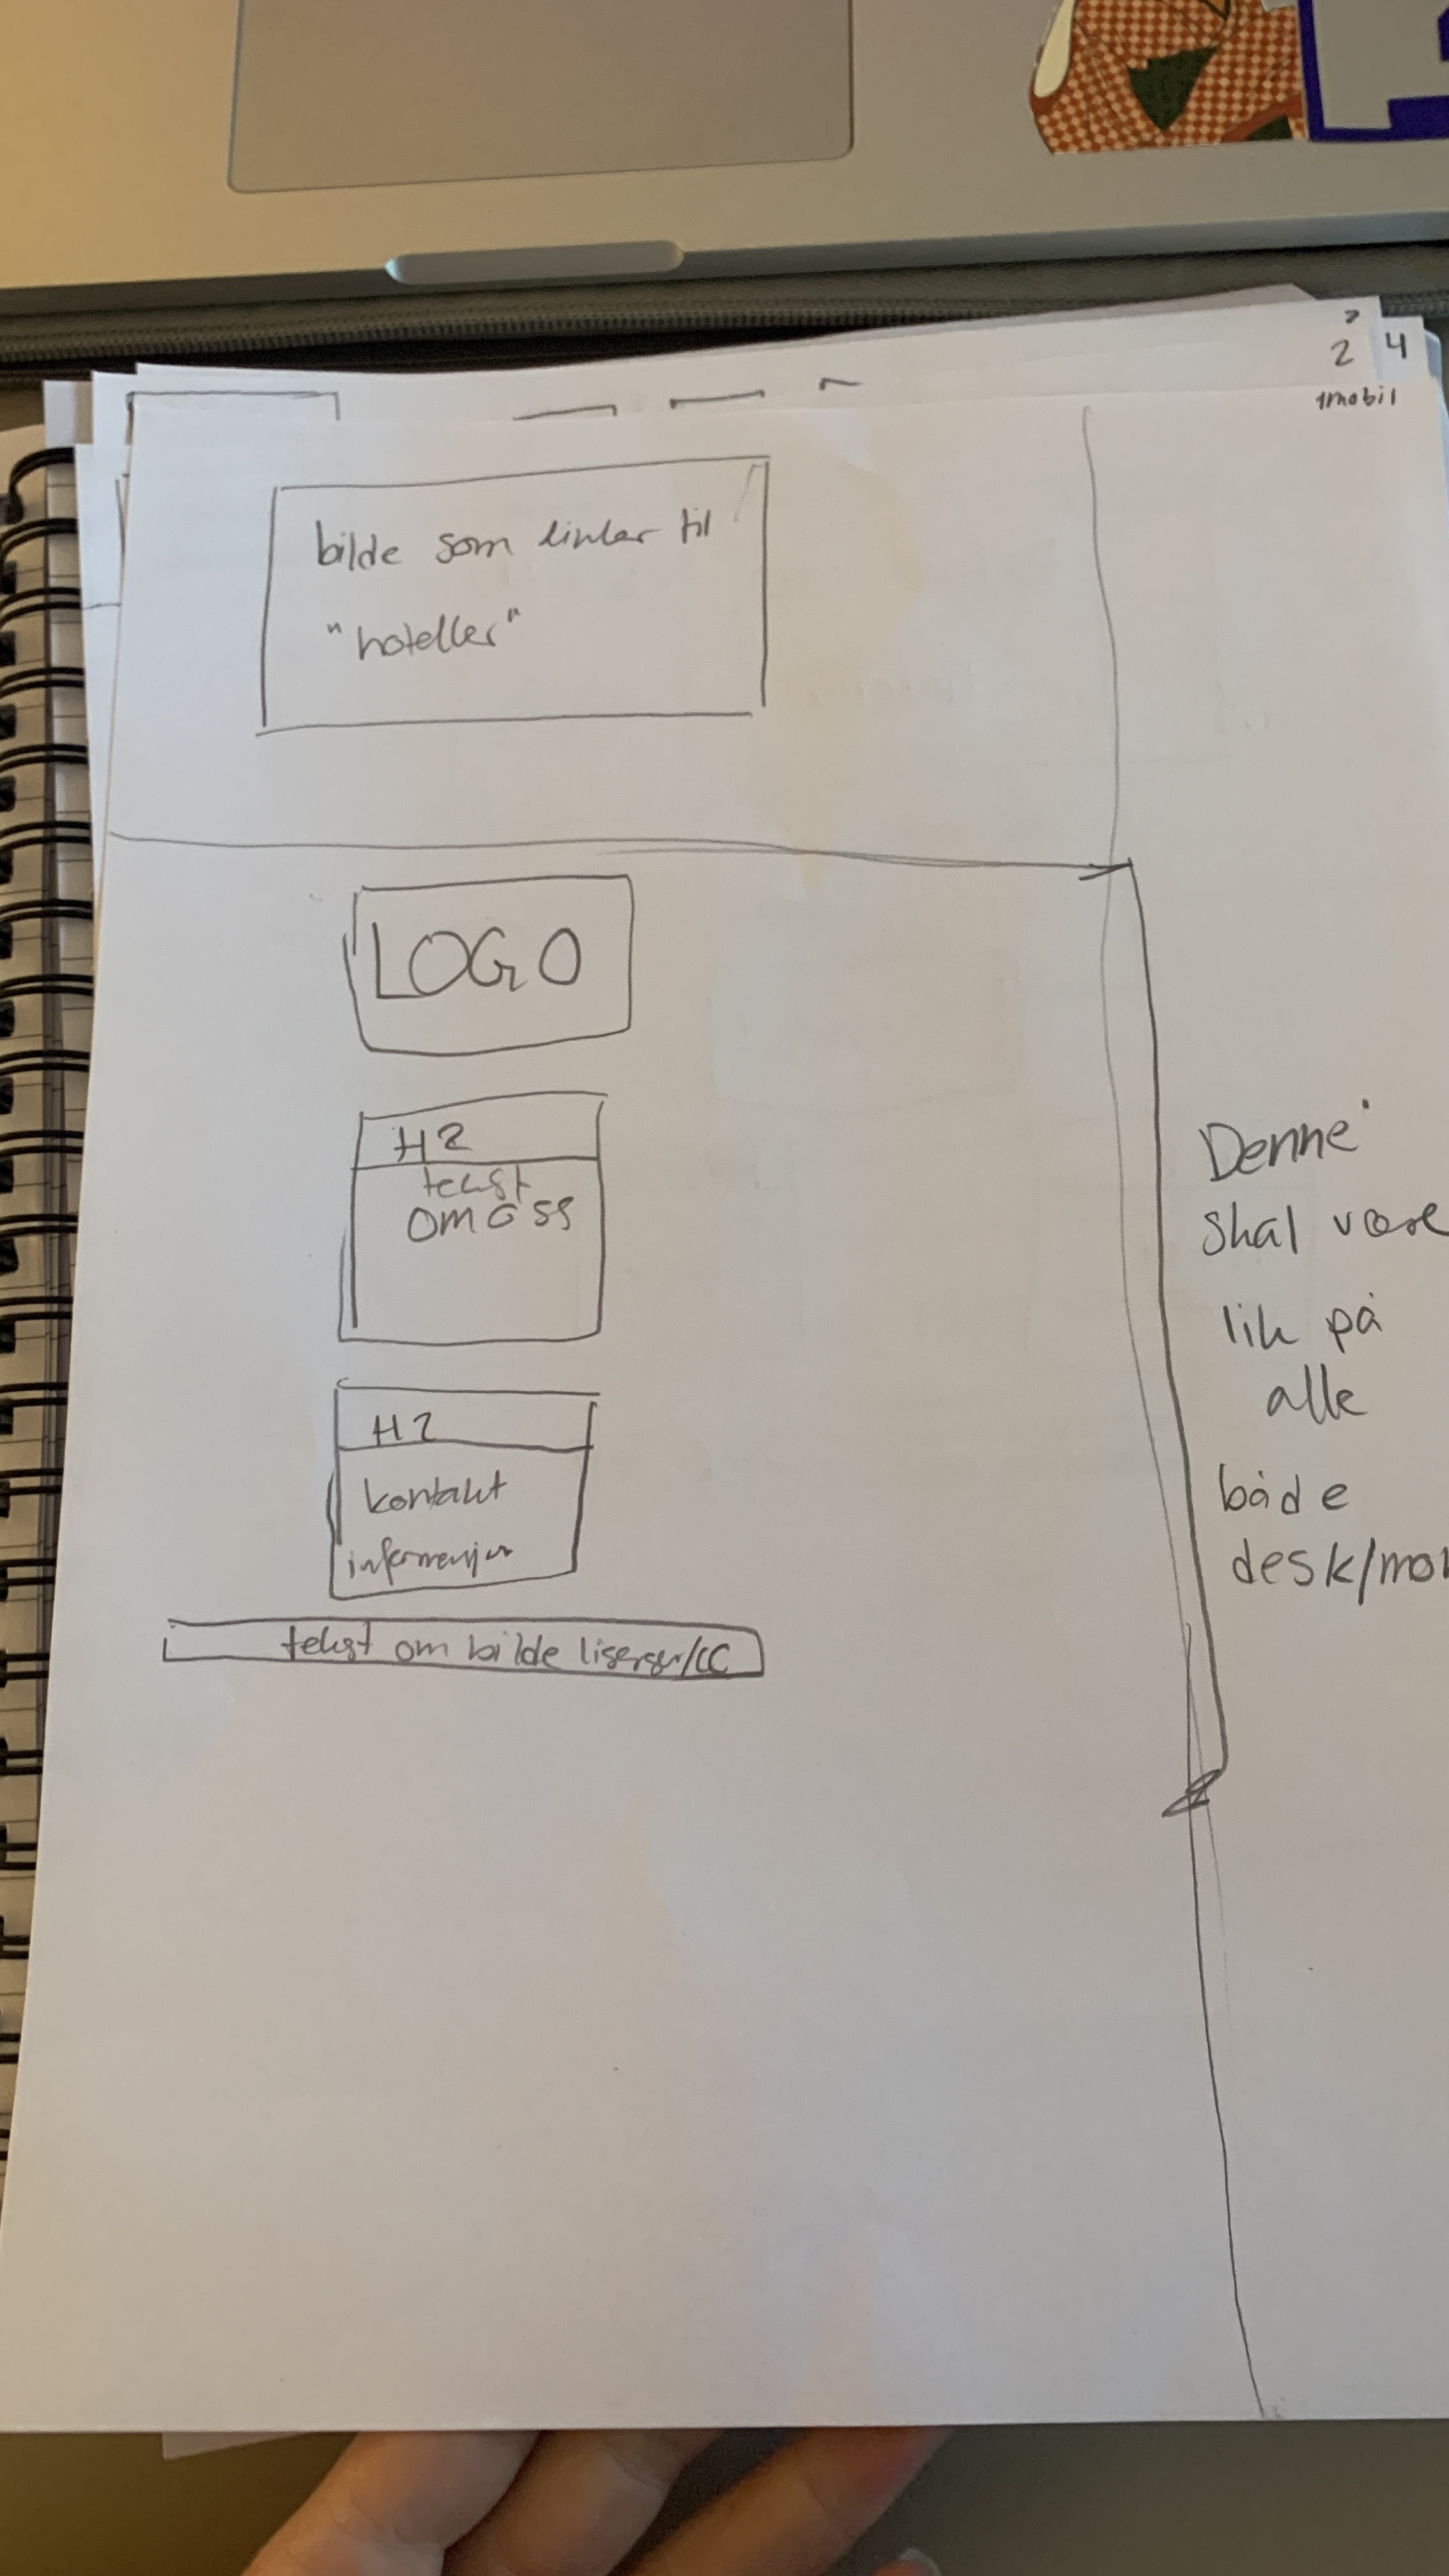 2
4
1mobil
bilde som linker til
"hoteller"
LOGO
H2
tekst
om oss
H2
kontakt
informasjon
tekst om bilde liserser/CC
Denne
skal være
lik på
alle
både
desk/mob